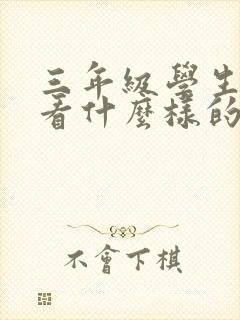 三年級學生
看什麼樣的
不會下棋